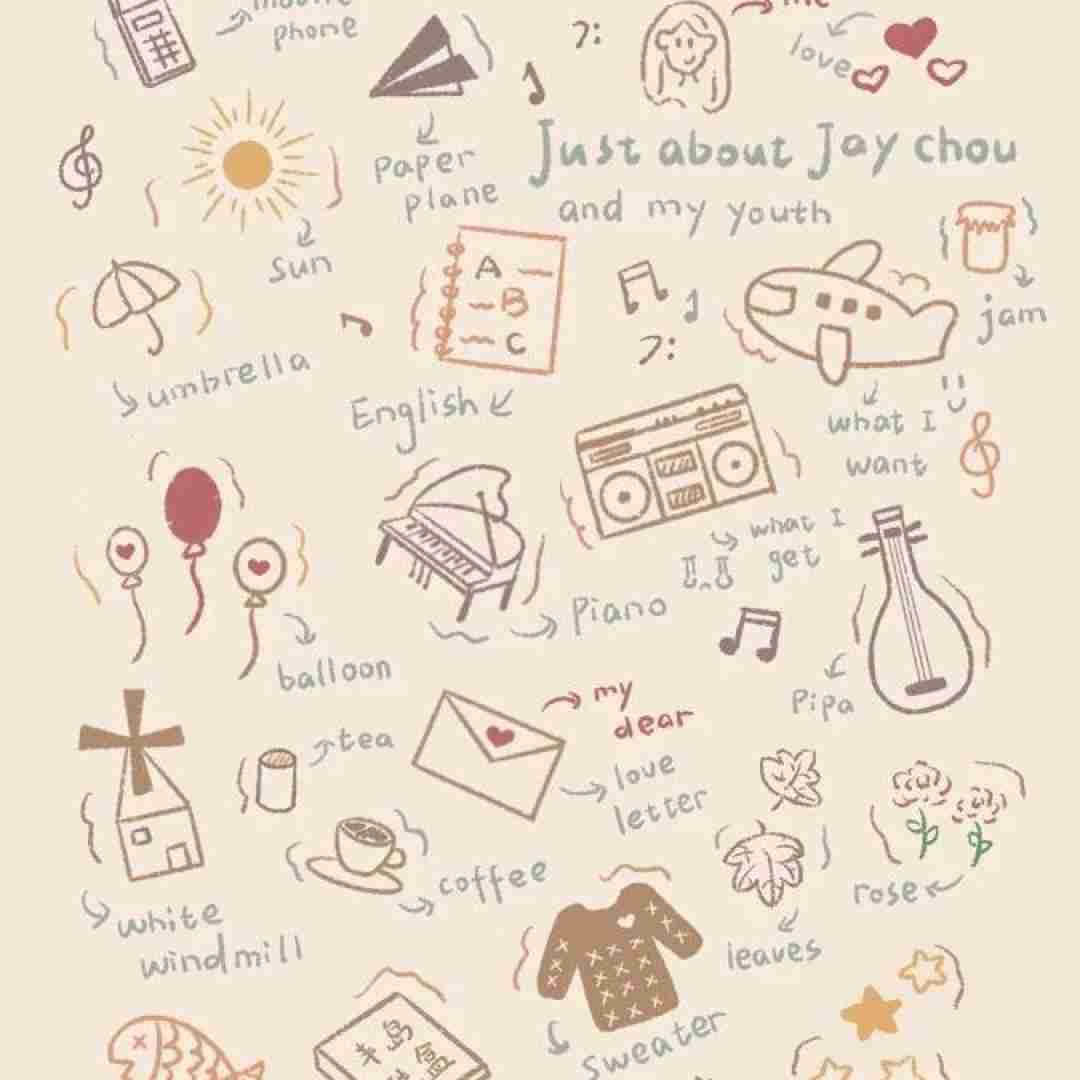 phone
me
love
paper
plane
Just about Jay chou
and my youth
sun
jam
A
B
C
umbrella
English
what I
want
what I
get
Piano
balloon
Pipa
my
dear
tea
love
letter
coffee
rose
white
windmill
leaves
sweater
半岛
盒